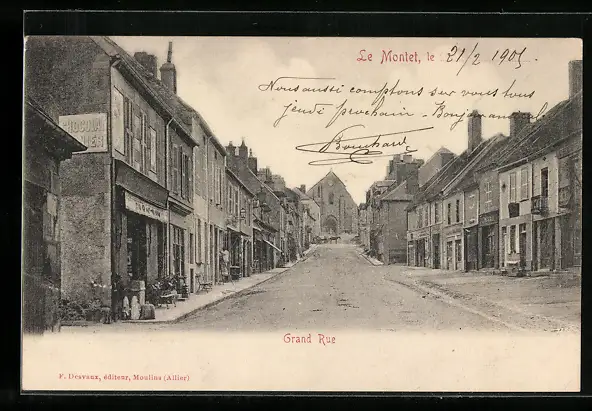 Le Montet, le 21/2 1905.
Nous aussi comptons sur vous tous
jeudi prochain - Bonjour aval
Bouchard
Grand Rue
F. Desvaux, éditeur, Moulins (Allier)